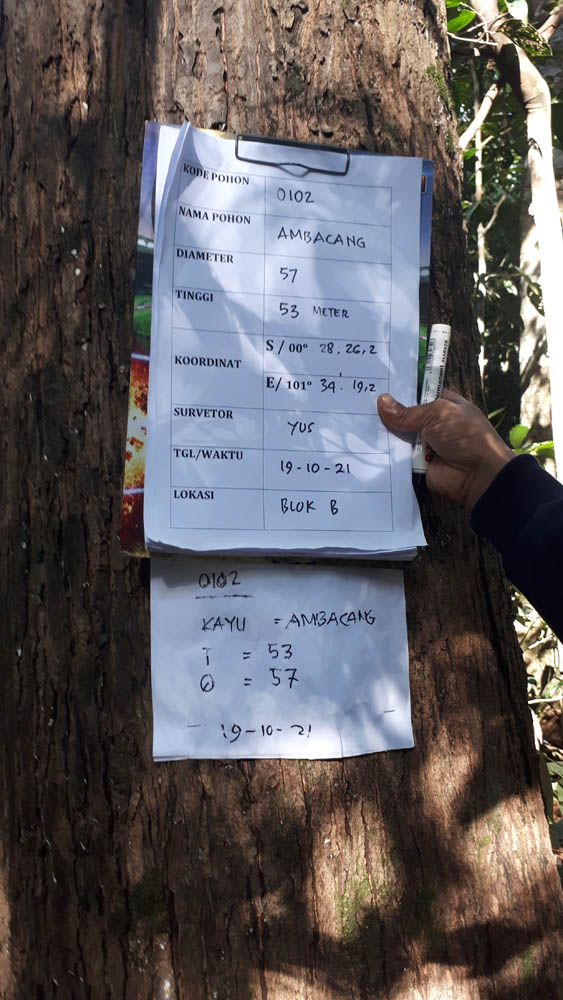 KODE POHON 0102
NAMA POHON AMBACANG
DIAMETER 57
TINGGI 53 METER
KOORDINAT S / 00° 28, 26,2
E/ 101° 34' 19,2
SURVETOR YUS
TGL/WAKTU 19-10-21
LOKASI BLOK B
0102
KAYU = AMBACANG
T = 53
Ø = 57
19-10-21